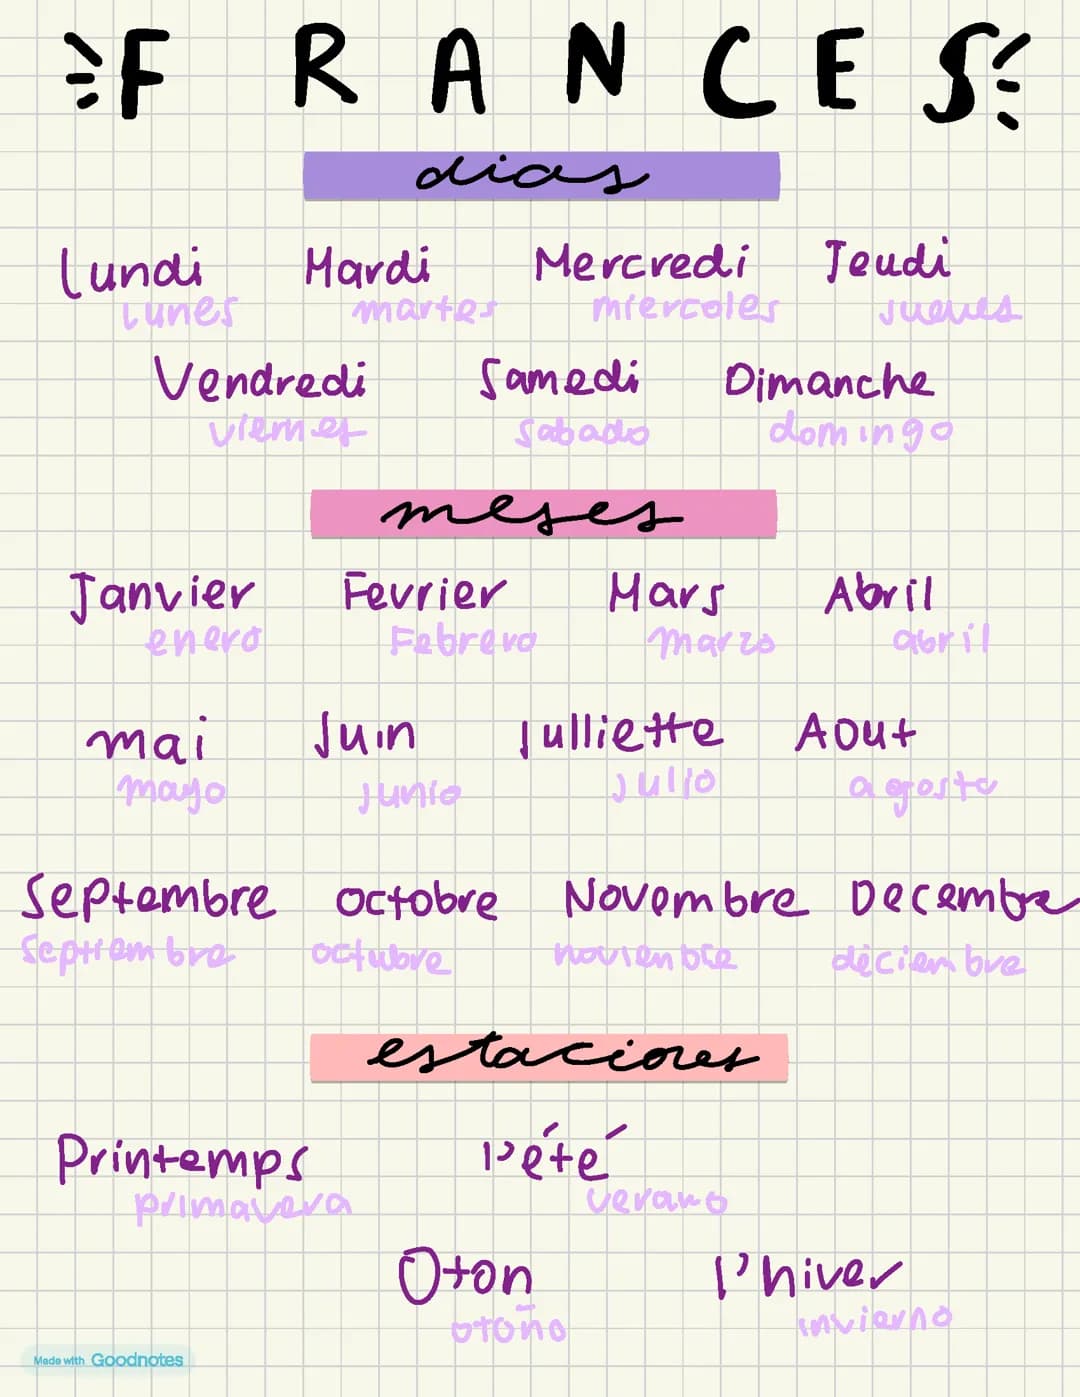 FRANCES
dias
lundi Mardi Mercredi Jeudi
lunes martes miercoles jueves
Vendredi Samedi Dimanche
viernes sabado domingo
meses
Janvier Fevrier Mars Abril
enero Febrero marzo abril
mai Juin Julliette Aout
mayo junio julio agosto
Septembre octobre Novembre Decembre
Septiembre octubre novienbre deciembre
estaciones
Printemps l'été
primavera verano
Oton l'hiver
otoño invierno
Made with Goodnotes